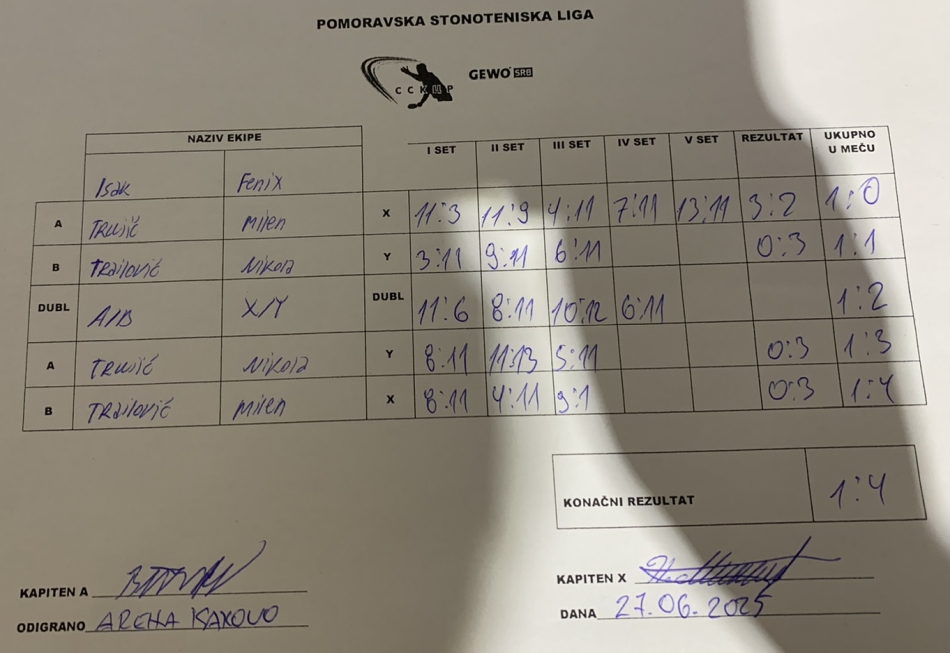 POMORAVSKA STONOTENISKA LIGA
CCKUP GEWO SRB
NAZIV EKIPE I SET II SET III SET IV SET V SET REZULTAT UKUPNO U MEČU
Isak Fenix
A Trujić Milen X 11:3 11:9 4:11 7:11 13:11 3:2 1:0
B Trailović Nikola Y 3:11 9:11 6:11 0:3 1:1
DUBL A/B X/Y DUBL 11:6 8:11 10:12 6:11 1:2
A Trujić Nikola Y 8:11 11:13 5:11 0:3 1:3
B Trailović Milen X 8:11 4:11 9:1 0:3 1:4
KONAČNI REZULTAT 1:4
KAPITEN A KAPITEN X
ODIGRANO ARENA KAKOVO DANA 27.06.2025